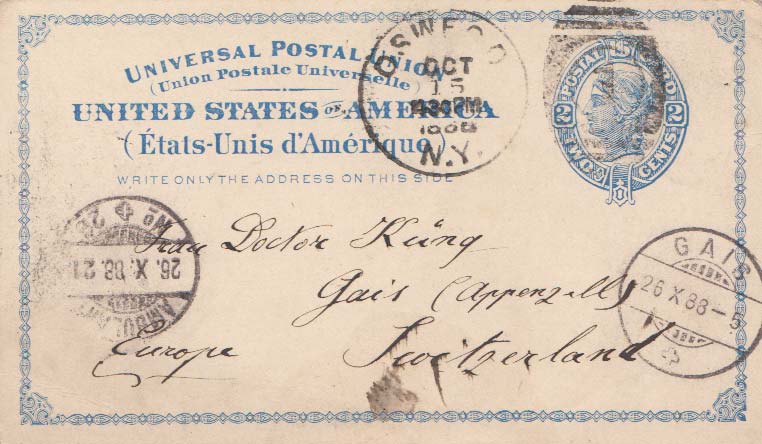 UNIVERSAL POSTAL UNION
(Union Postale Universelle)
UNITED STATES OF AMERICA
(États-Unis d'Amérique)
WRITE ONLY THE ADDRESS ON THIS SIDE
OSWEGO
OCT
15
430PM
1888
N.Y.
POSTAL CARD
2 2
TWO CENTS
Frau Doctor Küng
Gais (Appenzell)
Europe Switzerland
AMBULANT
26.X.88.21
No
GAIS
26 X 88-5